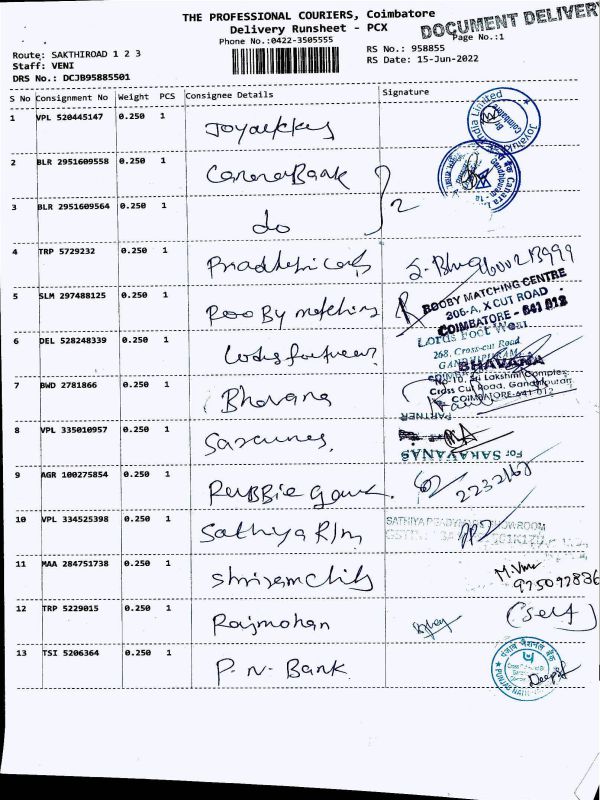 THE PROFESSIONAL COURIERS, Coimbatore
DOCUMENT DELIVERY
Delivery Runsheet - PCX
Phone No.:0422-3505555
Page No.:1
Route: SAKTHIROAD 1 2 3
RS No.: 958855
Staff: VENI
RS Date: 15-Jun-2022
DRS No.: DCJB95885501
S No Consignment No Weight PCS Consignee Details Signature
1 VPL 520445147 0.250 1 Joyalukkas
2 BLR 2951609558 0.250 1 Canara Bank
3 BLR 2951609564 0.250 1 do 2
4 TRP 5729232 0.250 1
5 SLM 297488125 0.250 1 Roo By matching
ROOBY MATCHING CENTRE
306-A, X CUT ROAD
COIMBATORE - 641 012
6 DEL 528248339 0.250 1
268, Cross-cut Road
GANDHIPURAM
BHAVANA
7 BWD 2781866 0.250 1 Bhavana
No:10, Sri Lakshmi Complex
Cross Cut Road, Gandhipuram
COIMBATORE-641 012
PARTNER
8 VPL 335010957 0.250 1
For SARAVANAS
9 AGR 100275854 0.250 1
10 VPL 334525398 0.250 1 Sathiya R/m
11 MAA 284751738 0.250 1
12 TRP 5229015 0.250 1 Rajmohan (Self)
13 TSI 5206364 0.250 1 P. N. Bank
Deepa